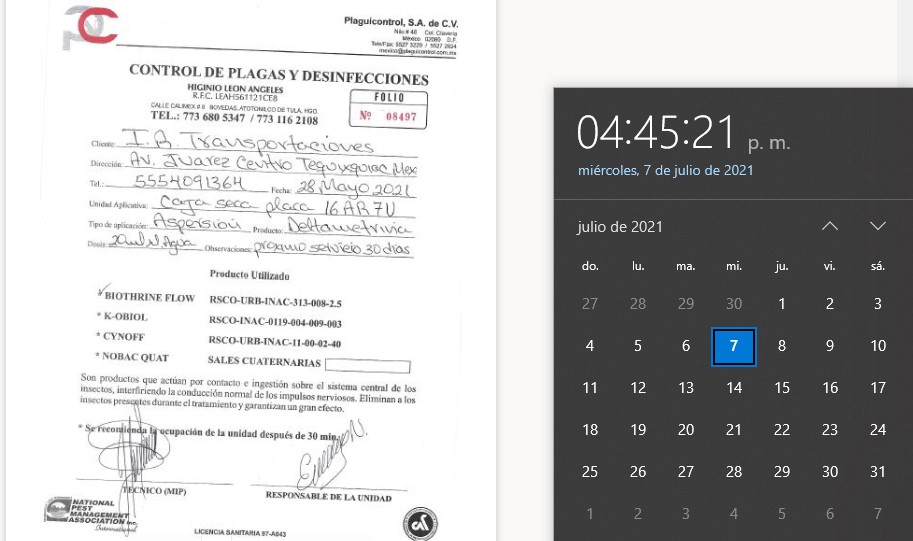 PC
Plaguicontrol, S.A. de C.V.
Nilo # 46 Col. Clavería
México 02080 D.F.
Tels/Fax: 5527 3229 / 5527 2834
mexico@plaguicontrol.com.mx
CONTROL DE PLAGAS Y DESINFECCIONES
HIGINIO LEON ANGELES
R.F.C. LEAH561121CE8
CALLE CALIMEX # 8 BOVEDAS, ATOTONILCO DE TULA, HGO.
TEL.: 773 680 5347 / 773 116 2108
FOLIO
Nº 08497
Cliente: I.B. Transportaciones
Dirección: Av. Juarez Centro Tequixquiac Mex
Tel.: 5554091364 Fecha: 28 Mayo 2021
Unidad Aplicativa: Caja seca placa 16AR7U
Tipo de aplicación: Aspersion Producto: Deltametrivia
Dosis: 20ml/l Agua Observaciones: proximo servicio 30 dias
Producto Utilizado
* BIOTHRINE FLOW RSCO-URB-INAC-313-008-2.5
* K-OBIOL RSCO-INAC-0119-004-009-003
* CYNOFF RSCO-URB-INAC-11-00-02-40
* NOBAC QUAT SALES CUATERNARIAS
Son productos que actúan por contacto e ingestión sobre el sistema central de los
insectos, interfiriendo la conducción normal de los impulsos nerviosos. Eliminan a los
insectos presentes durante el tratamiento y garantizan un gran efecto.
* Se recomienda la ocupación de la unidad después de 30 min.
TÉCNICO (MIP) RESPONSABLE DE LA UNIDAD
NATIONAL
PEST
MANAGEMENT
ASSOCIATION Inc.
International
LICENCIA SANITARIA 97-A043
04:45:21 p. m.
miércoles, 7 de julio de 2021
julio de 2021
do. lu. ma. mi. ju. vi. sá.
27 28 29 30 1 2 3
4 5 6 7 8 9 10
11 12 13 14 15 16 17
18 19 20 21 22 23 24
25 26 27 28 29 30 31
1 2 3 4 5 6 7